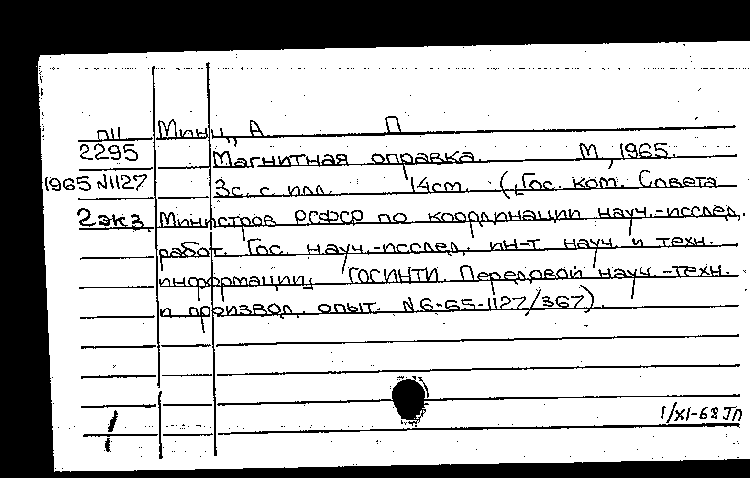 пц Минц, А П
2295 Магнитная оправка. М, 1965.
1965 N1127 3с. с илл. 14см. (Гос. ком. Совета
2экз. Министров РСФСР по координации науч.-исслед.
работ. Гос. науч.-исслед. ин-т науч. и техн.
информации, ГОСИНТИ. Передовой науч.-техн.
и производ. опыт. N6-65-1127/367).
1/XI-68